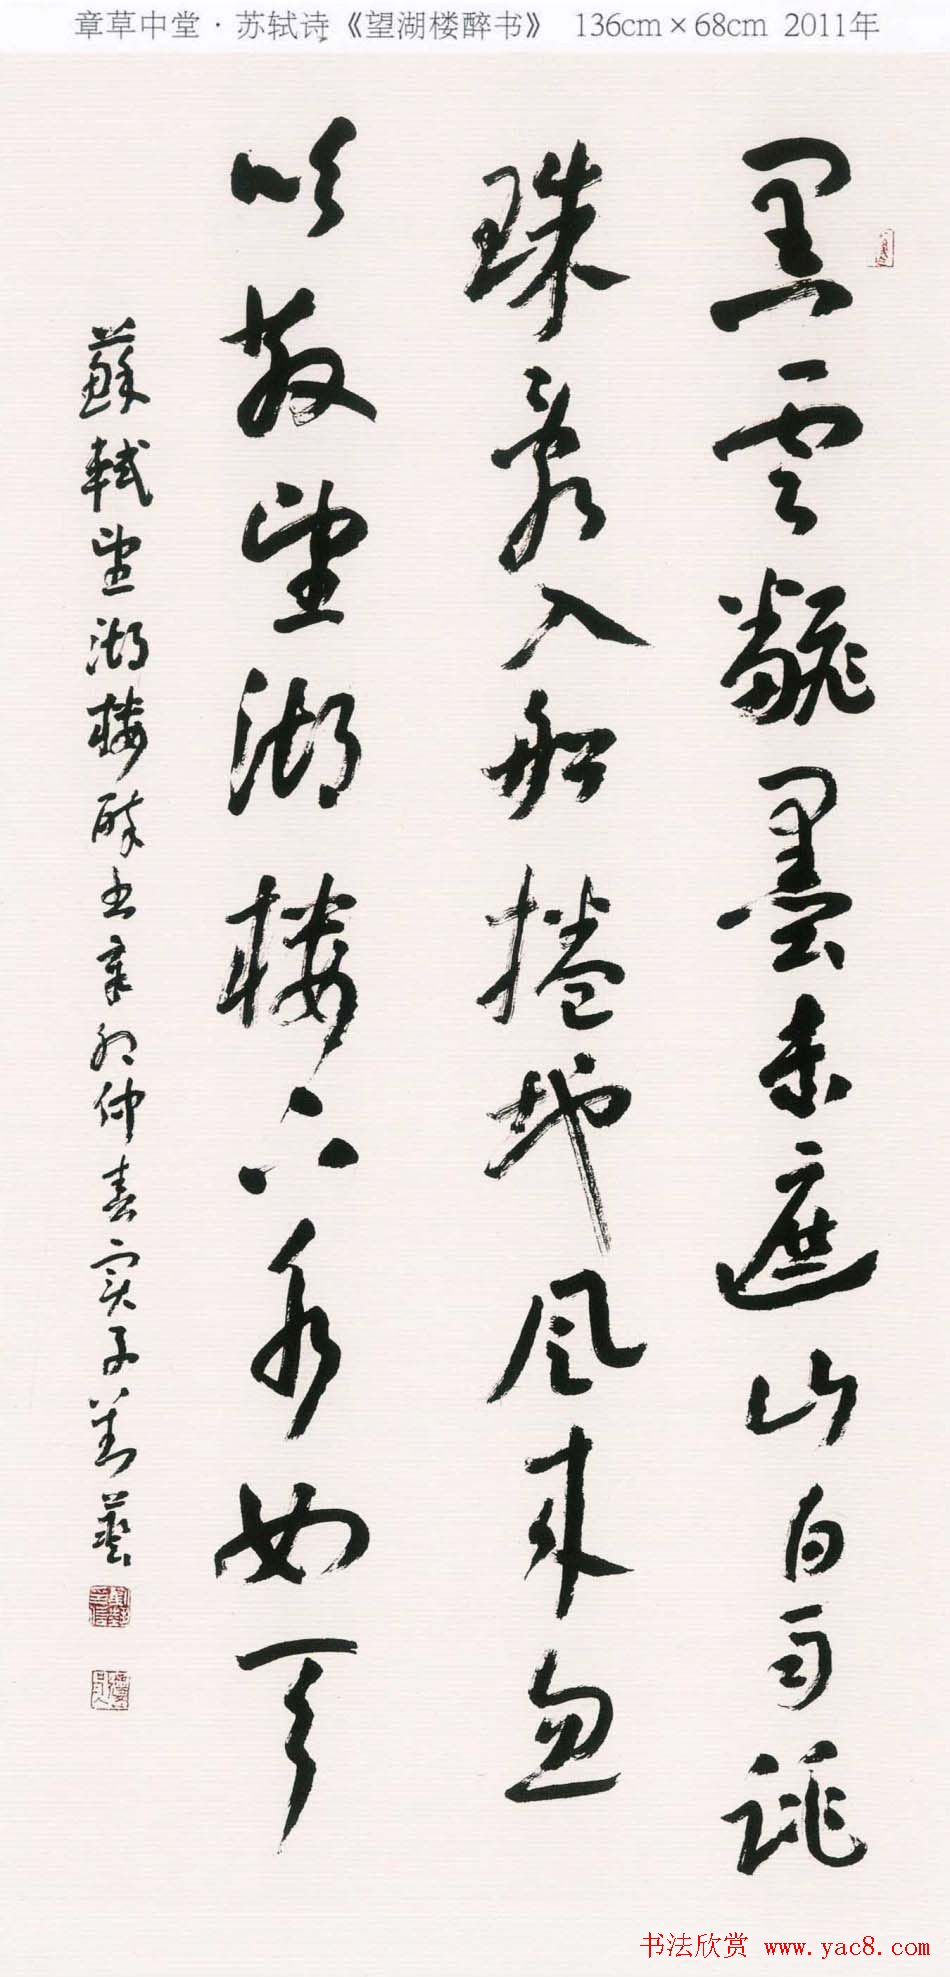 章草中堂·苏轼诗《望湖楼醉书》 136cm×68cm 2011年
黑雲飜墨未遮山白雨跳
珠亂入船捲地風來忽
吹散望湖樓下水如天
蘇軾望湖樓醉書辛卯仲春子劉藝
书法欣赏 www.yac8.com